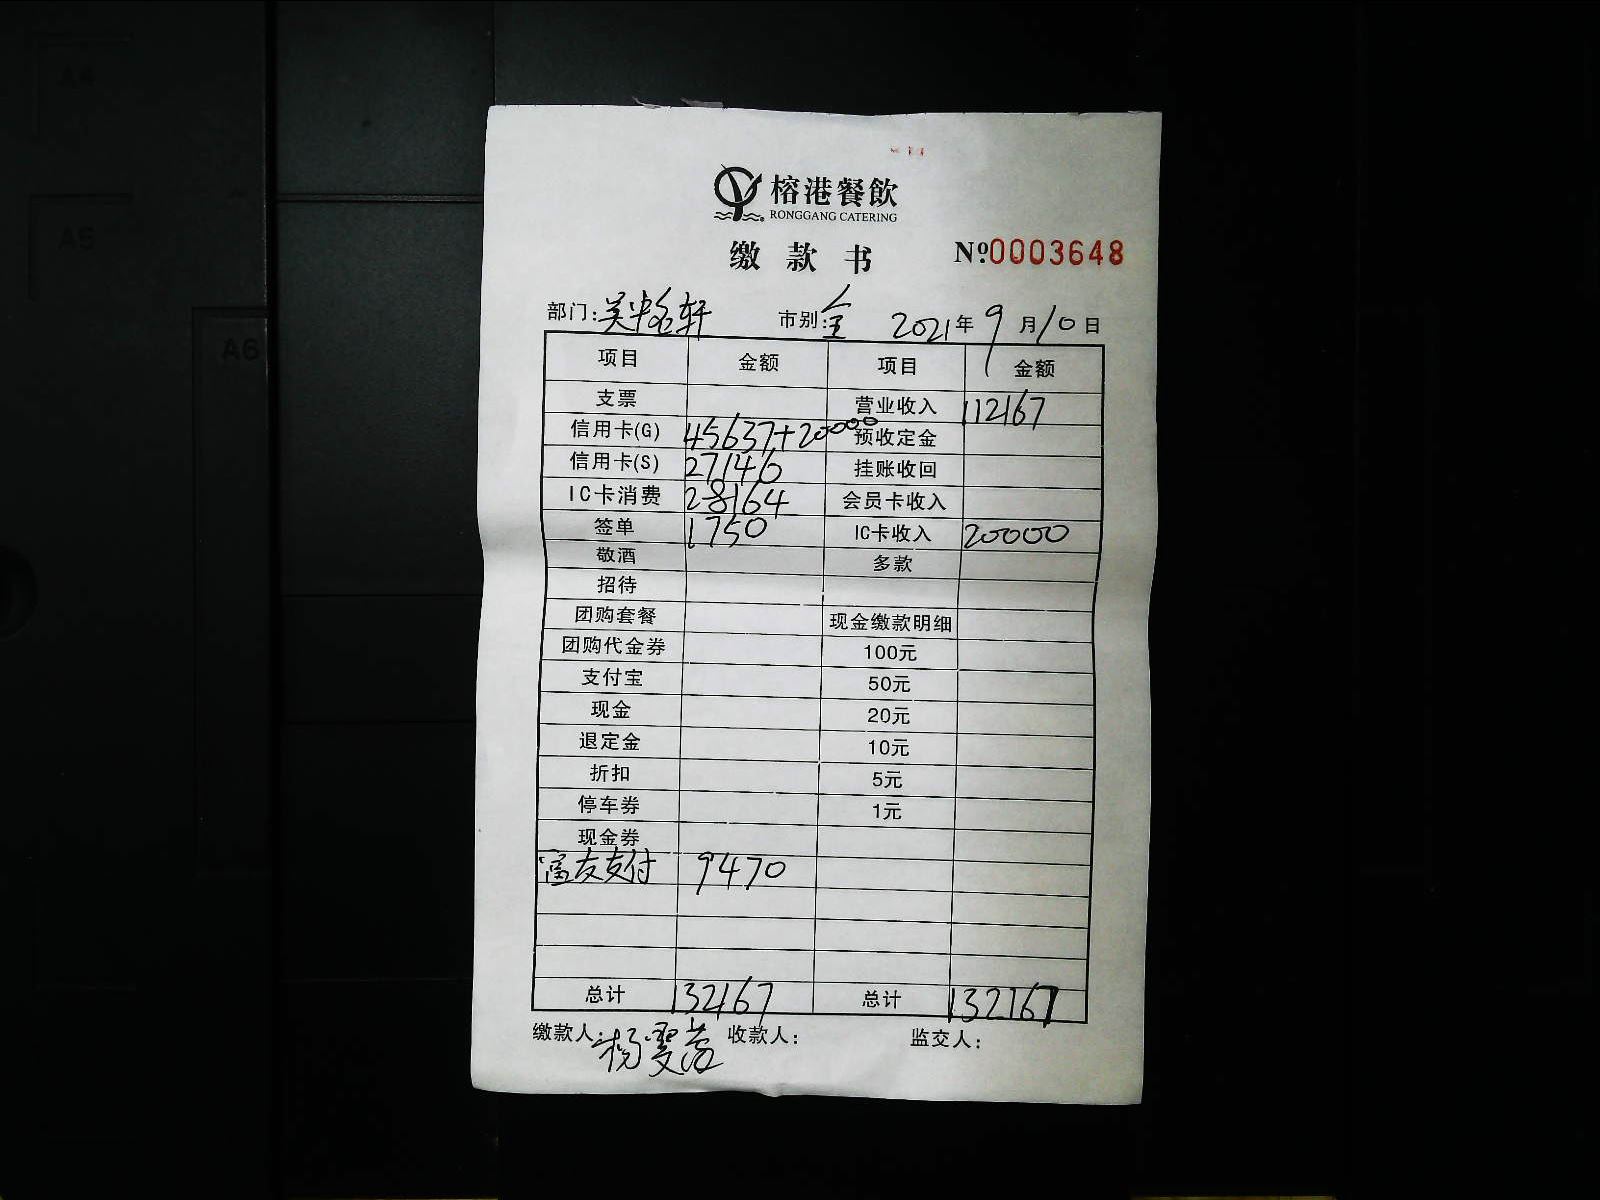 榕港餐飲
RONGGANG CATERING
缴款书 №:0003648
部门:吴中名轩 市别:全 2021年9月10日
项目 金额 项目 金额
支票 营业收入 112167
信用卡(G) 45637+20000 预收定金
信用卡(S) 27146 挂账收回
IC卡消费 28164 会员卡收入
签单 1750 IC卡收入 20000
敬酒 多款
招待
团购套餐 现金缴款明细
团购代金券 100元
支付宝 50元
现金 20元
退定金 10元
折扣 5元
停车券 1元
现金券
富友支付 9470
总计 132167 总计 132167
缴款人:杨 收款人: 监交人:
A4
A5
A6